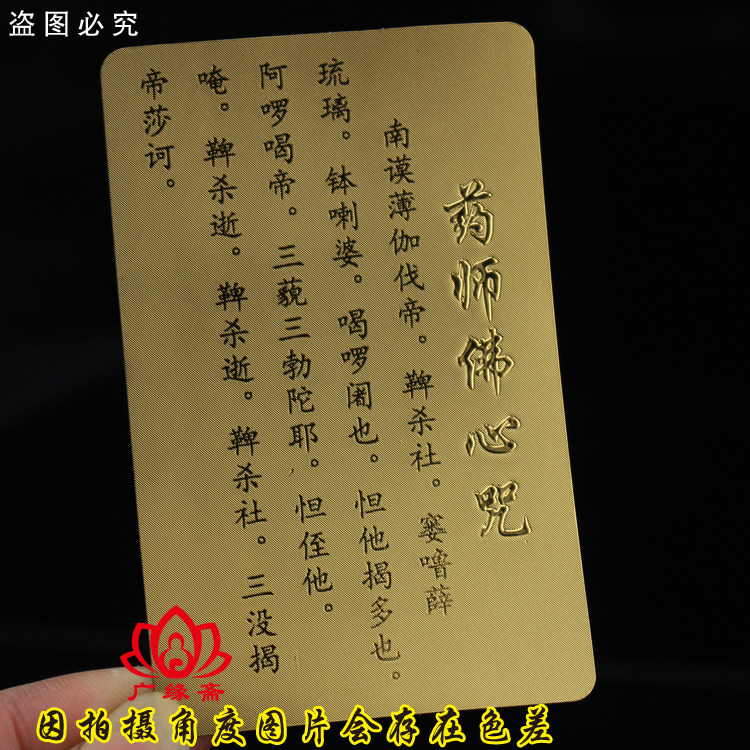 盗图必究
药师佛心咒
南谟薄伽伐帝。鞞杀社。窭噜薜
琉璃。钵喇婆。喝啰闍也。怛他揭多也。
阿啰喝帝。三藐三勃陀耶。怛侄他。
唵。鞞杀逝。鞞杀逝。鞞杀社。三没揭
帝莎诃。
广缘斋
因拍摄角度图片会存在色差